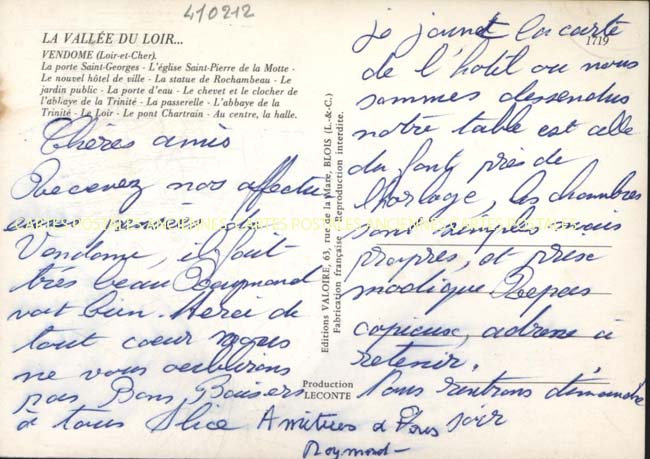 410212
LA VALLÉE DU LOIR...
VENDOME (Loir-et-Cher).
La porte Saint-Georges - L'église Saint-Pierre de la Motte -
Le nouvel hôtel de ville - La statue de Rochambeau - Le
jardin public - La porte d'eau - Le chevet et le clocher de
l'abbaye de la Trinité - La passerelle - L'abbaye de la
Trinité - Le Loir - Le pont Chartrain - Au centre, la halle.
Chères amis
Recevez nos affectu
de
Vendome, il fait
très beau Raymond
vat bien. Merci de
tout coeur nous
ne vous oublions
pas Bons Baisers
à tous Alice Amitiés à Vous
Raymond
Editions VALOIRE, 63, rue de la Mare, BLOIS (L.-&-C.)
Fabrication française - Reproduction interdite.
Production
LECONTE
1719
je joint la carte
de l'hotil ou nous
sommes dessendus
notre table est celle
du font, près de
l'horloge, les chambres
sont simples mais
propres, et prix
modique Repas
copieux, adresse à
retenir.
Nous rentrons dimanche
soir
CARTES POSTALES ANCIENNES CARTES POSTALES ANCIENNES CARTES POSTALES